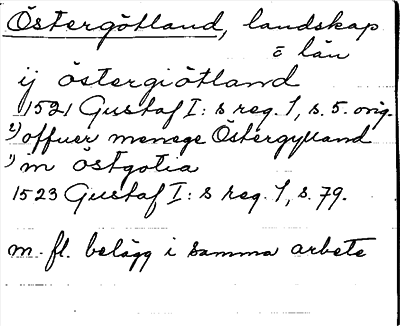 Östergötland, landskap
o län
ij östergiötland
1521 Gustaf I:s reg. 1, s. 5. orig.
2) offuer menege Östergylland
1) m östgotia
1523 Gustaf I:s reg. 1, s. 79.
m. fl. belägg i samma arbete